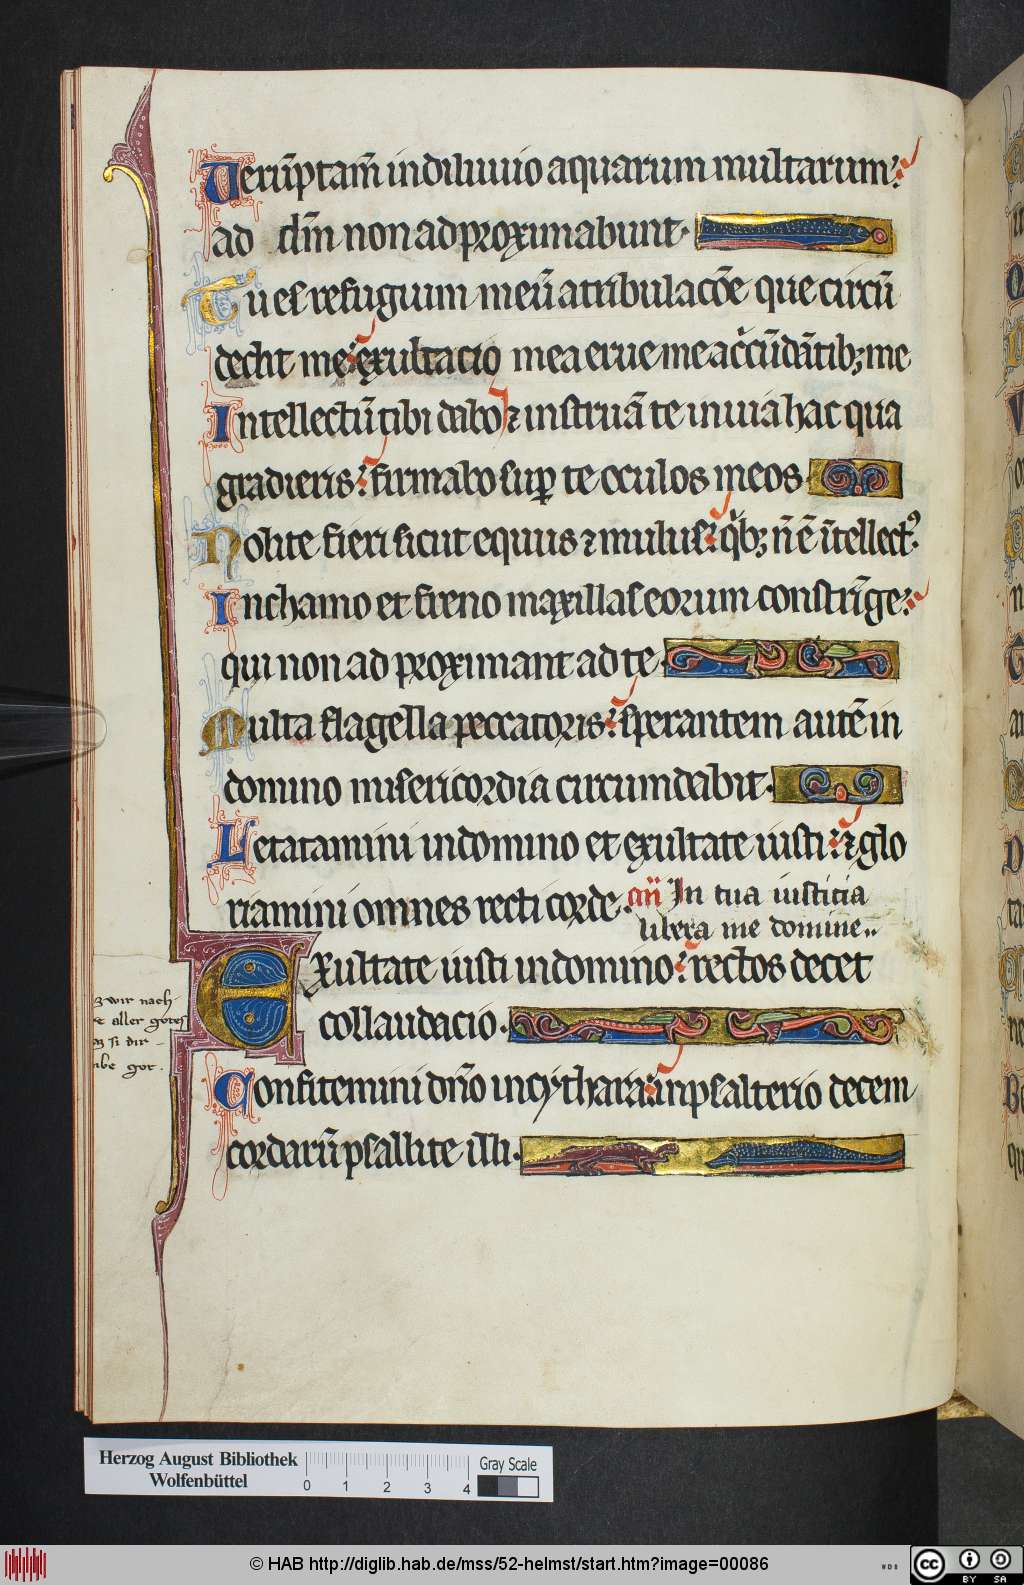 Uerūptam̄ in diluuio aquarum multarum
ad dm̄ non ad proximabunt.
Tu es refugium meū a tribulacōe que circū
dedit me exultacio mea erue me a c̓cūdātib; me
Intellectū tibi dabo ⁊ instruā te in uia hac qua
gradieris firmabo sup̱ te oculos meos
Nolite fieri sicut equus ⁊ mulus q̓b; nō ē ītellectꝰ.
In chamo et freno maxillas eorum constrīge
qui non ad proximant ad te
Multa flagella peccatoris sperantem autē in
domino misericordia circumdabit.
Letatamini in domino et exultate iusti ⁊ glo
riamini omnes recti corde. an̄ In tua iusticia
libera me domine..
EXultate iusti in domino rectos decet
collaudacio.
Confitemini dn̄o in cythara in psalterio decem
cordarū psallite illi.
wir nach
aller gotes
si dir
got.
Herzog August Bibliothek
Wolfenbüttel
0 1 2 3 4
Gray Scale
© HAB http://diglib.hab.de/mss/52-helmst/start.htm?image=00086
cc BY SA